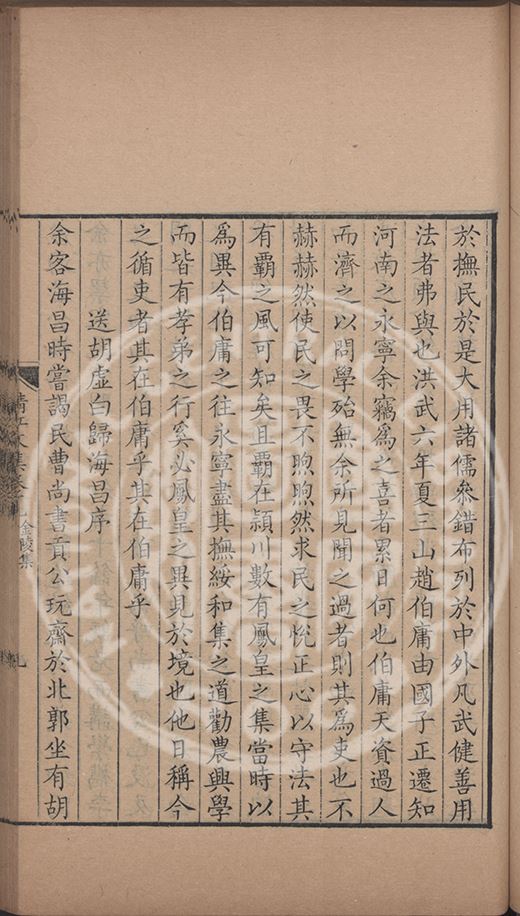 於撫民於是大用諸儒叅錯布列於中外凡武健善用
法者弗與也洪武六年夏三山趙伯庸由國子正遷知
河南之永寧余竊為之喜者累日何也伯庸天資過人
而濟之以問學殆無余所見聞之過者則其為吏也不
赫赫然使民之畏不煦煦然求民之悅正心以守法其
有霸之風可知矣且霸在潁川數有鳳皇之集當時以
為異今伯庸之往永寧盡其撫綏和集之道勸農興學
而皆有孝弟之行奚必鳳皇之異見於境也他日稱今
之循吏者其在伯庸乎其在伯庸乎
送胡虛白歸海昌序
余客海昌時嘗謁民曹尚書貢公玩齋於北郭坐有胡
清江文集卷
金陵集